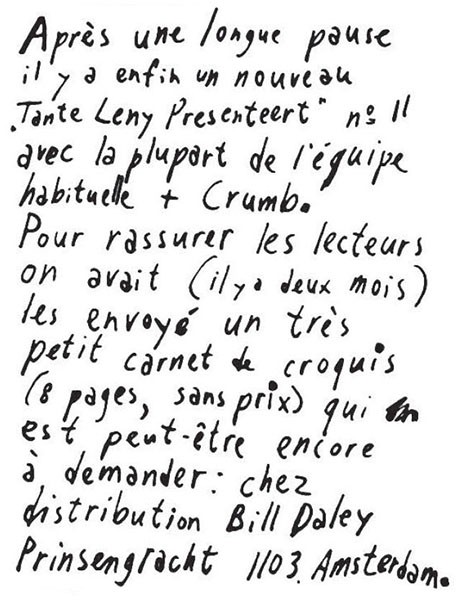 Après une longue pause
il y a enfin un nouveau
„Tante Leny Presenteert" nº 11
avec la plupart de l'équipe
habituelle + Crumb.
Pour rassurer les lecteurs
on avait (il y a deux mois)
les envoyé un très
petit carnet de croquis
(8 pages, sans prix) qui
est peut-être encore
à demander: chez
distribution Bill Daley
Prinsengracht 1103. Amsterdam.